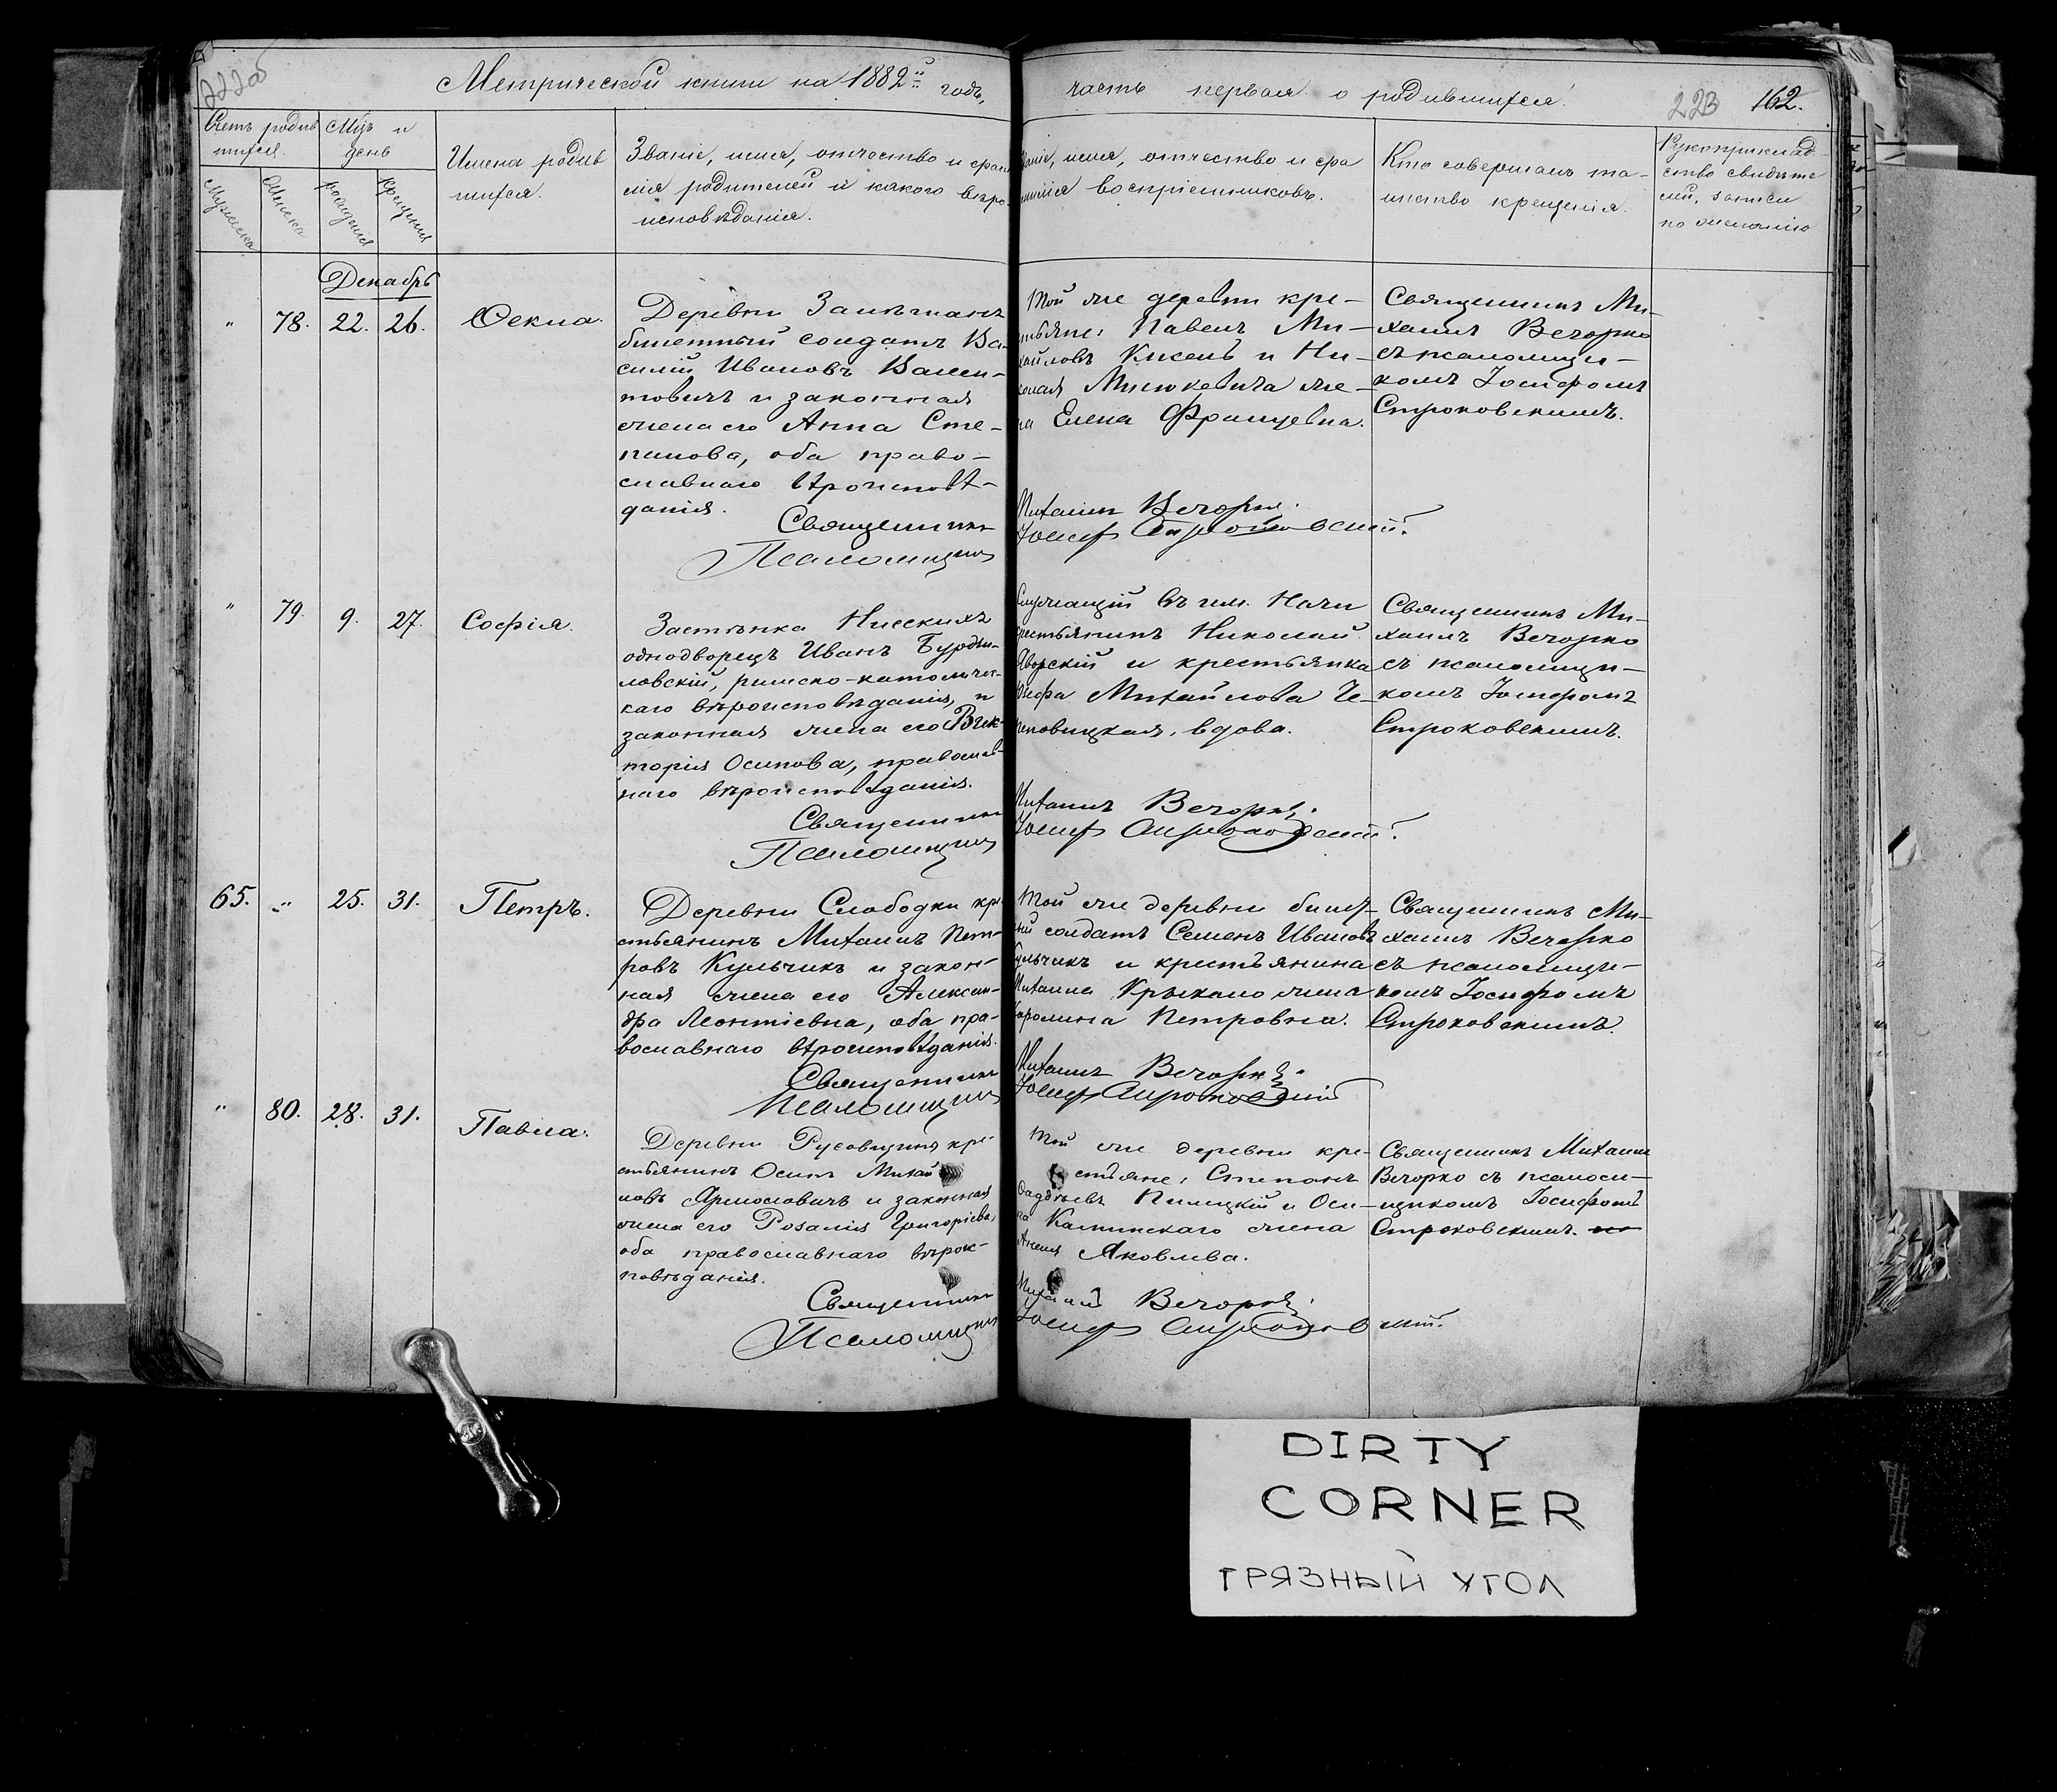 222об
Метрической книги на 1882й годъ,
часть первая о родившихся.
223 162.
Счетъ родив
шихся.
Мужеска
Женска
Мцъ и
день
рожденія
крещенія
Имена родив
шихся.
Званіе, имя, отчество и фами
лія родителей и какого вѣро-
исповѣданія.
Званіе, имя, отчество и фа
милія воспріемниковъ.
Кто совершалъ та-
инство крещенія.
Рукоприклад-
ство свидѣте
лей, записи
по желанію
Декабрь
" 78. 22. 26. Ѳекла.
Деревни
билетный солдатъ Ва-
силій Ивановъ
и законная
жена его Анна Сте-
панова, оба право-
славнаго вѣроисповѣ-
данія.
Священникъ
Псаломщикъ
Той же деревни кре-
стьяне: Павелъ Ми-
хайловъ Кисель и Ни-
колая Милюкевича же-
на Елена Францевна.
Михаилъ Вечорко.
Іосифъ Строковскій.
Священникъ Ми-
хаилъ Вечорко
съ псаломщи-
комъ Іосифомъ
Строковскимъ.
" 79. 9. 27. Софія.
Застѣнка
однодворецъ Иванъ
римско-католичес-
каго вѣроисповѣданія, и
законная жена его Вик-
торія Осипова, православ-
наго вѣроисповѣданія.
Священникъ
Псаломщикъ
Служащій въ им. Начи
крестьянинъ Николай
Яворскій и крестьянка
Юзефа Михайлова
вдова.
Михаилъ Вечорко.
Іосифъ Строковскій.
Священникъ Ми-
хаилъ Вечорко
съ псаломщи-
комъ Іосифомъ
Строковскимъ.
65. " 25. 31. Петръ.
Деревни Слободки кре-
стьянинъ Михаилъ Пет-
ровъ Кульчикъ и закон-
ная жена его Алексан-
дра Леонтіевна, оба пра-
вославнаго вѣроисповѣданія.
Священникъ
Псаломщикъ
Той же деревни билет-
ный солдатъ Семенъ Ивановъ
Кульчикъ и крестьянина
Михаила жена
Каролина Петровна.
Михаилъ Вечорко.
Іосифъ Строковскій
Священникъ Ми-
хаилъ Вечорко
съ псаломщи-
комъ Іосифомъ
Строковскимъ.
" 80. 28. 31. Павла.
Деревни Русовщины кре-
стьянинъ Осипъ Михай
ловъ Ярмоловичъ и законная
жена его Розалія Григоріева,
оба православнаго вѣроис-
повѣданія.
Священникъ
Псаломщикъ
Той же деревни кре-
стьяне: Степанъ
Ѳаддѣевъ и Оси-
па Каминскаго жена
Анеля Яковлева.
Михаилъ Вечорко.
Іосифъ Строковскій.
Священникъ Михаилъ
Вечорко съ псалом-
щикомъ Іосифомъ
Строковскимъ.
DIRTY
CORNER
ГРЯЗНЫЙ УГОЛ